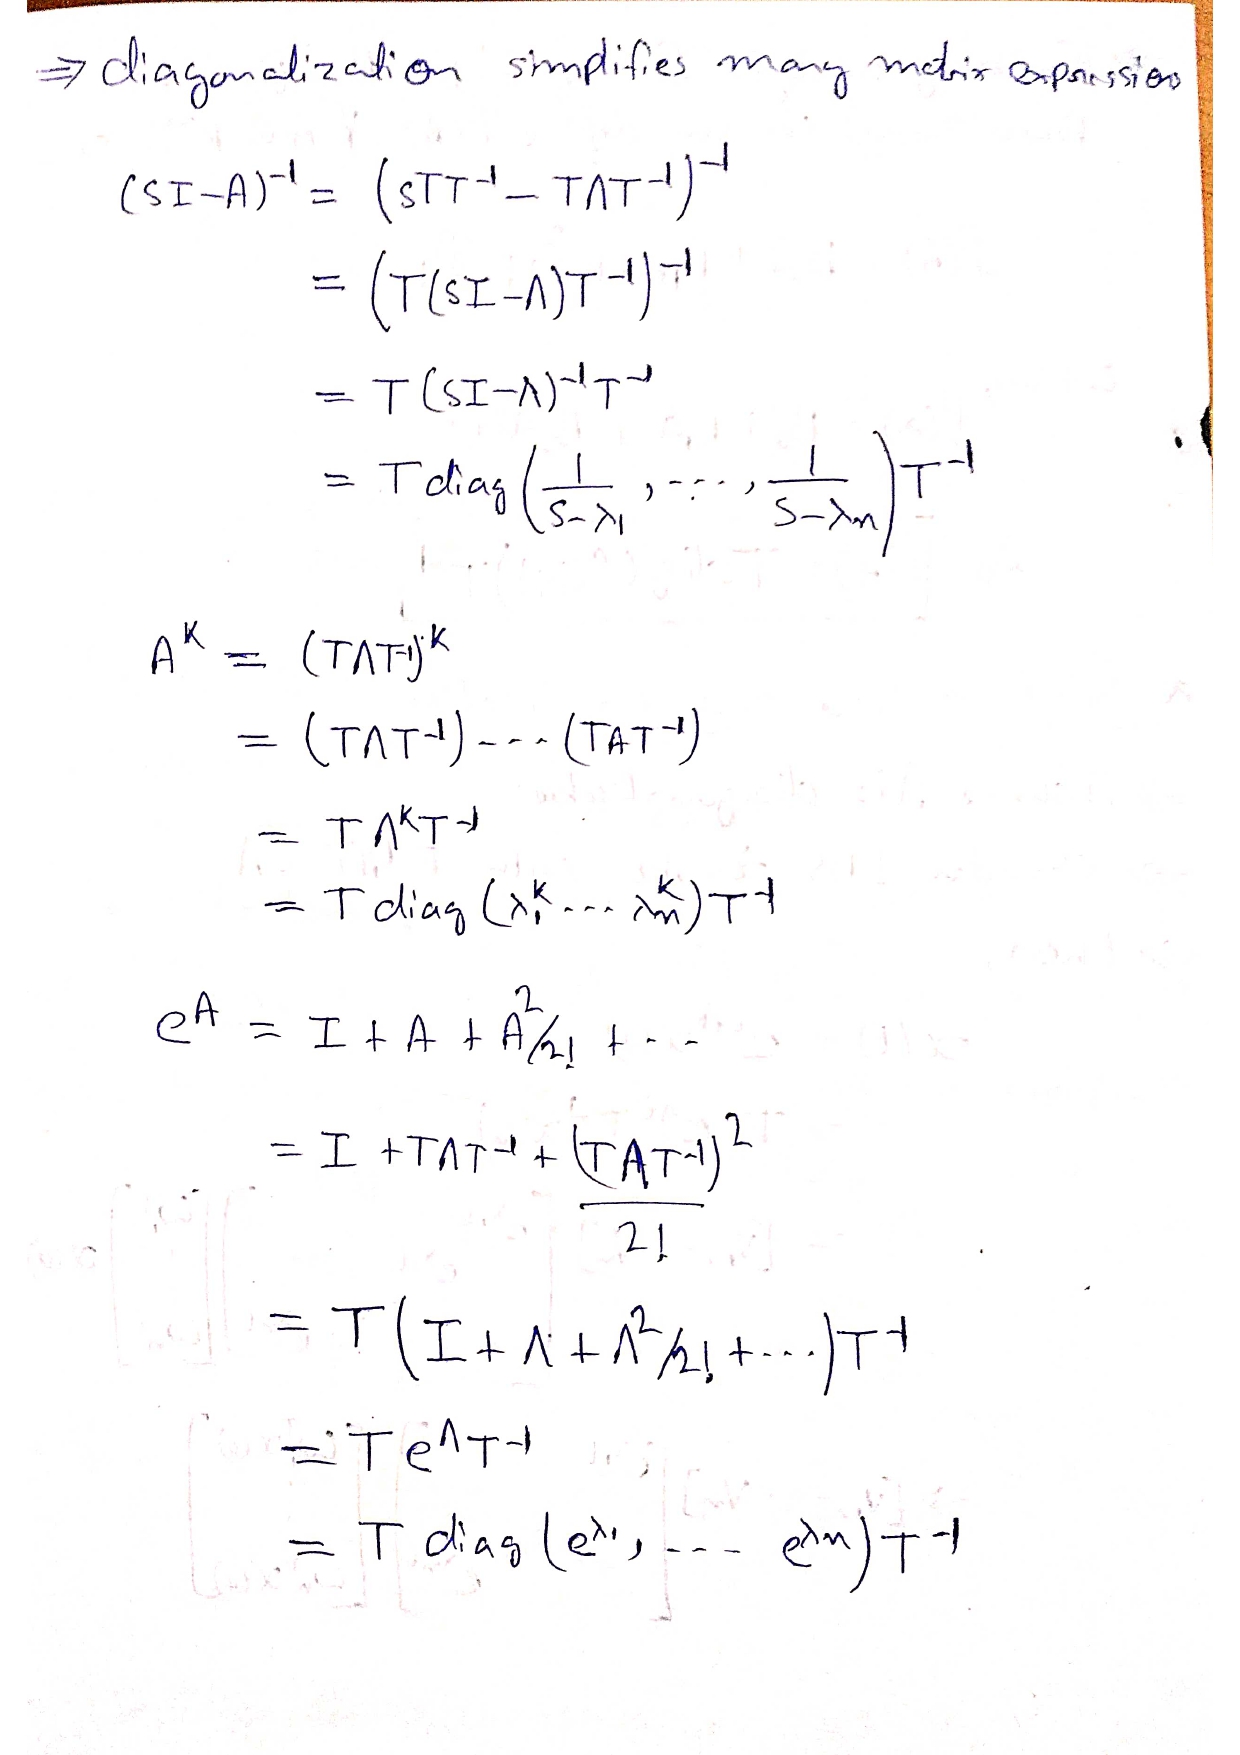 ⇒ diagonalization simplifies many matrix expression
(SI-A)⁻¹ = (sTT⁻¹ - TΛT⁻¹)⁻¹
= (T(sI-Λ)T⁻¹)⁻¹
= T(SI-Λ)⁻¹T⁻¹
= T diag(1/(S-λ₁), ---, 1/(S-λn))T⁻¹
Aᴷ = (TΛT⁻¹)ᴷ
= (TΛT⁻¹)---(TAT⁻¹)
= TΛᴷT⁻¹
= T diag(λ₁ᴷ... λnᴷ)T⁻¹
eᴬ = I + A + A²/2! + --
= I + TΛT⁻¹ + (TAT⁻¹)²/2!
= T(I + Λ + Λ²/2! + ...)T⁻¹
= T e^Λ T⁻¹
= T diag(e^λ₁, --- e^λn)T⁻¹